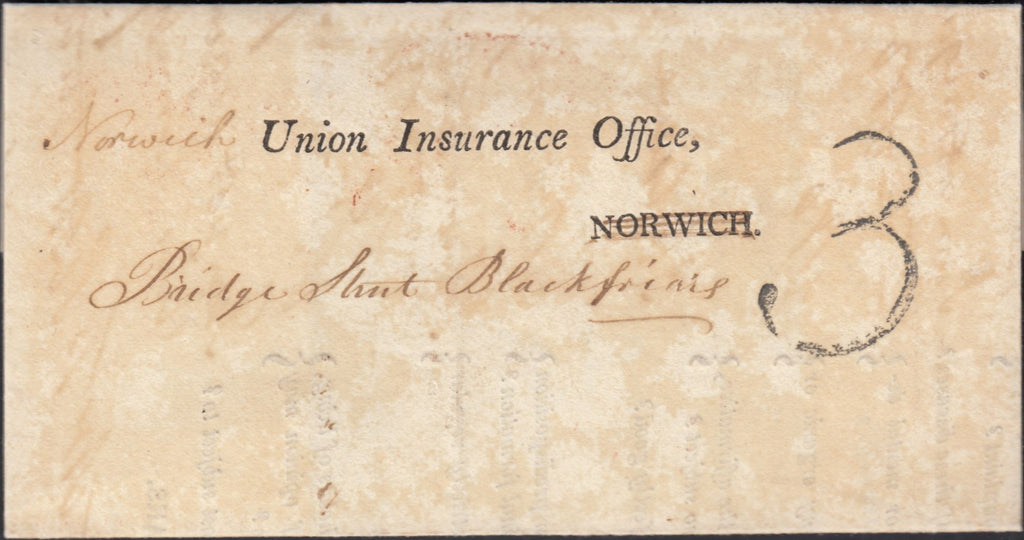 Norwich Union Insurance Office,
NORWICH.
3
Bridge Street Blackfriars